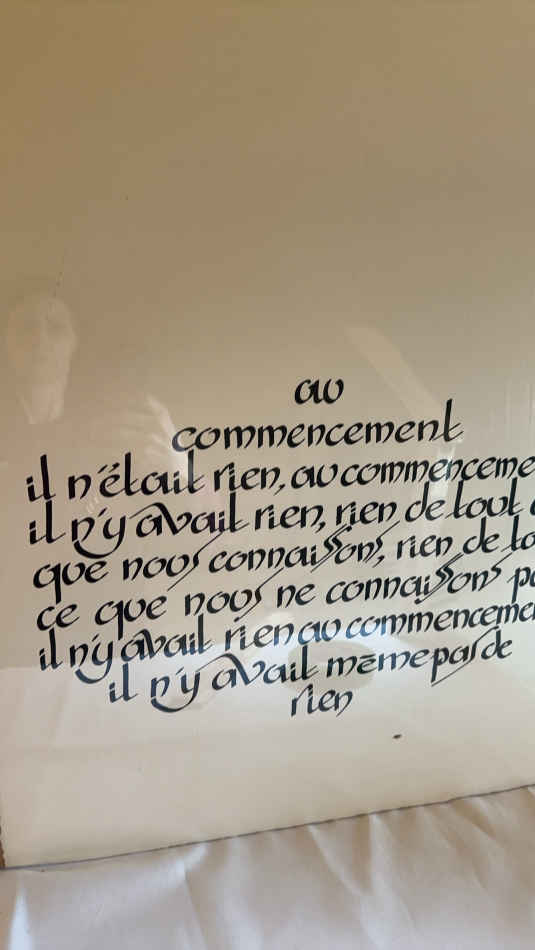 au
commencement
il n'était rien, au commenceme
il n'y avait rien, rien de tout
que nous connaissons, rien de to
ce que nous ne connaissons pa
il n'y avait rien au commencemen
il n'y avait même pas de
rien